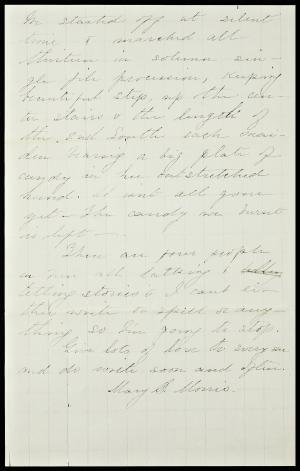 We started off at silent
time & marched all
thirteen in solemn sin-
gle file procession, keeping
beautiful step, up the cen-
ter stairs & the length of
the 2nd South each maid-
en bearing a big plate of
candy in her outstretched
hand. It isn't all gone
yet - the candy we burnt
is left -
There are four people
in here all talking &
telling stories & I can't ei-
ther write or spell or any-
thing so I'm going to stop.
Give lots of love to everyone
and do write soon and often.
Mary S. Morris.